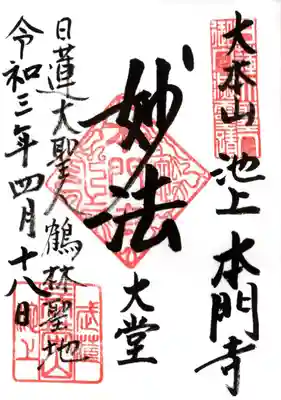 大本山 池上 本門寺
妙法
大堂
日蓮大聖人鶴林聖地
令和三年四月十八日